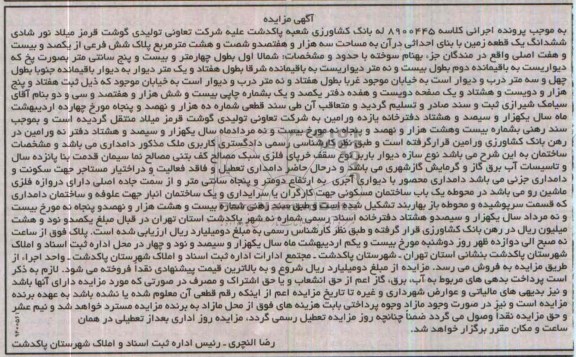 آگهی مزایده
به موجب پرونده اجرائی کلاسه ۸۹۰۰۴۴۵ له بانک کشاورزی شعبه پاکدشت علیه شرکت تعاونی تولیدی گوشت قرمز میلاد نور شادی
ششدانگ یک قطعه زمین با بنای احداثی در آن به مساحت سه هزار و هفتصد و شصت و هشت مترمربع پلاک شش فرعی از یکصد و بیست
و هفت اصلی واقع در مندگان جز، بهنام سوخته با حدود و مشخصات: شمالا اول بطول چهارمتر و بیست و پنج سانتی متر بصورت پخ که
دیواریست به باقیمانده دوم بطول بیست و نه متر دیواریست به باقیمانده شرقا بطول هفتاد و یک متر دیوار به دیوار باقیمانده جنوبا بطول
چهل و سه متر درب و دیوار است به خیابان موجود غربا بطول هفتاد و نه متر درب و دیوار است به خیابان موجود که ذیل ثبت هفتاد و پنج
هزار و دویست و هشتاد و یک صفحه دویست و هفده دفتر یکصد و یک بشماره چاپی بیست و شش هزار و هفتصد و سی و دو بنام آقای
سیامک شیرازی ثبت و سند صادر و تسلیم گردید و متعاقب آن طی سند قطعی شماره ده هزار و نهصد و پنجاه مورخ چهارده اردیبهشت
ماه سال یکهزار و سیصد و هشتاد دفترخانه یازده ورامین به شرکت تعاونی تولیدی گوشت قرمز میلاد منتقل گردیده است و بموجب
سند رهنی بشماره بیست وهشت هزار و نهصد و پنجاه نه مورخ بیست و نه مردادماه سال یکهزار و سیصد و هشتاد دفتر نه ورامین در
رهن بانک کشاورزی ورامین قرارگرفته است و طبق نظر کارشناس رسمی دادگستری کاربری ملک مذکور دامداری می باشد و مشخصات
ساختمان به این شرح می باشد نوع سازه دیوار باربر نوع سقف خرپای فلزی سبک مصالح کف بتنی مصالح نما سیمان قدمت بنا پانزده سال
و تاسیسات آب برق گاز و گرمایش گازشهری می باشد و درحال حاضر دامداری تعطیل و فاقد فعالیت و دراختیار مستاجر جهت سکونت و
دامداری جزئی می باشد دامداری محصور با دیواری آجری به ارتفاع دومتر و پنجاه سانتی متر و از سمت جاده اصلی دارای دروازه فلزی
ماشین رو می باشد در محوطه یک باب ساختمان مسکونی جهت کارگران یا سرایداری و یک ساختمان انبار جهت علوفه و ساختمان دامداری
که قسمت سرپوشیده و محوطه باز بهاربند تشکیل شده است و طبق سند رهنی شماره بیست و هشت هزار و نهصد و پنجاه نه مورخ بیست
و نه مرداد سال یکهزار و سیصد و هشتاد دفترخانه اسناد رسمی شماره نه شهر پاکدشت استان تهران در قبال مبلغ یکصد و نود و هشت
میلیون ریال در رهن بانک کشاورزی قرار گرفته و طبق نظر کارشناس رسمی به مبلغ دومیلیارد ریال ارزیابی شده است. پلاک فوق از ساعت
نه صبح الی دوازده ظهر روز دوشنبه مورخ بیست و یکم اردیبهشت ماه سال یکهزار و سیصد و نود و چهار در محل اداره ثبت اسناد و املاک
شهرستان پاکدشت بنشانی استان تهران ـ شهرستان پاکدشت ـ مجتمع ادارات اداره ثبت اسناد و املاک شهرستان پاکدشت ـ واحد اجرا، از
طریق مزایده به فروش می رسد. مزایده از مبلغ دومیلیارد ریال شروع و به بالاترین قیمت پیشنهادی نقدا فروخته می شود. لازم به ذکر
است پرداخت بدهی های مربوط به آب، برق، گاز اعم از حق انشعاب و یا حق اشتراک و مصرف در صورتی که مورد مزایده دارای آنها باشد
و نیز بدهیهای مالیاتی و عوارض شهرداری و غیره تا تاریخ مزایده اعم از اینکه رقم قطعی آن معلوم شده یا نشده باشد به عهده برنده
مزایده است و نیز در صورت وجود مازاد وجوه پرداختی بابت هزینه های فوق از محل مازاد به برنده مزایده مسترد خواهد شد و نیم عشر
و حق مزایده نقدا وصول می گردد ضمناً چنانچه روز مزایده تعطیل رسمی گردد، مزایده روز اداری بعد از تعطیلی در همان
ساعت و مکان مقرر برگزار خواهد شد.
رضا النچری ـ رئیس اداره ثبت اسناد و املاک شهرستان پاکدشت